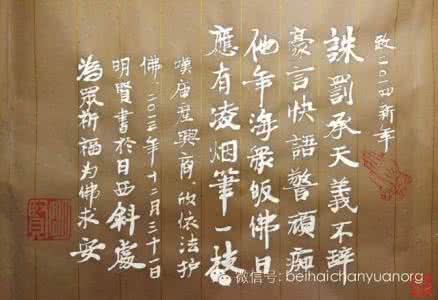 致二〇一四新年
誅罰承天義不辭
豪言快語警頑痴
他年海眾皈佛日
應有凌烟筆一枝
嘆唐產興商 欣依法護
佛 二〇一三年十二月三十一日
明賢書於日西斜處
為眾祈福為佛求安
微信号: beihaichanyuanorg